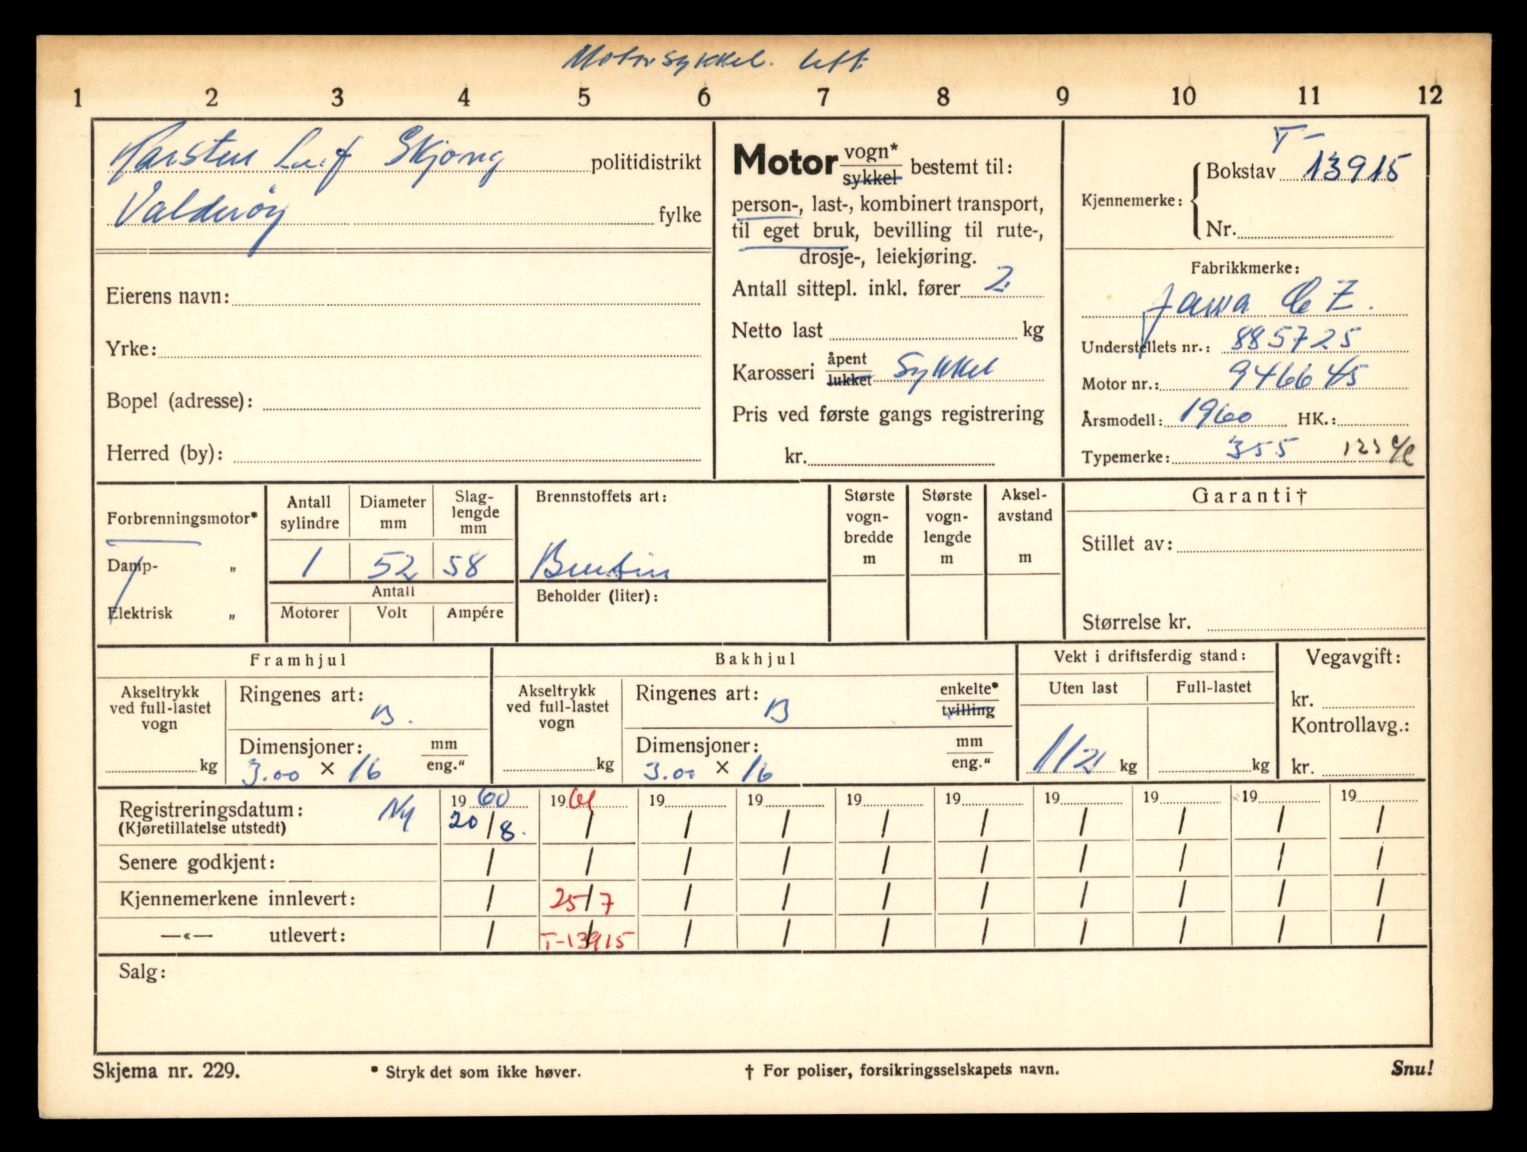 Motorsykkel. lett
1 2 3 4 5 6 7 8 9 10 11 12
Karsten Leif Skjong politidistrikt
Valderøy fylke
Eierens navn:
Yrke:
Bopel (adresse):
Herred (by):
Motor vogn* sykkel bestemt til:
person-, last-, kombinert transport,
til eget bruk, bevilling til rute-,
drosje-, leiekjøring.
Antall sittepl. inkl. fører 2
Netto last kg
Karosseri åpent lukket sykkel
Pris ved første gangs registrering
kr.
Kjennemerke: Bokstav T-13915
Nr.
Fabrikkmerke:
Jawa CZ.
Understellets nr.: 885725
Motor nr.: 946645
Årsmodell: 1960 HK.:
Typemerke: 355 123 cc
Forbrenningsmotor*
Damp- „
Elektrisk „
Antall sylindre Diameter mm Slaglengde mm
1 52 58
Antall
Motorer Volt Ampére
Brennstoffets art:
Bensin
Beholder (liter):
Største vogn-bredde m
Største vogn-lengde m
Aksel-avstand m
Garanti†
Stillet av:
Størrelse kr.
Framhjul
Akseltrykk ved full-lastet vogn kg
Ringenes art: B.
Dimensjoner: mm eng."
3.00 × 16
Bakhjul
Akseltrykk ved full-lastet vogn kg
Ringenes art: B enkelte* tvilling
Dimensjoner: mm eng."
3.00 × 16
Vekt i driftsferdig stand:
Uten last Full-lastet
112 kg kg
Vegavgift:
kr.
Kontrollavg.:
kr.
Registreringsdatum: Ny 1960 1961 19 19 19 19 19 19 19 19
(Kjøretillatelse utstedt) 20/8.
Senere godkjent:
Kjennemerkene innlevert: 25/7
—«— utlevert: T-13915
Salg:
Skjema nr. 229. * Stryk det som ikke høver. † For poliser, forsikringsselskapets navn. Snu!